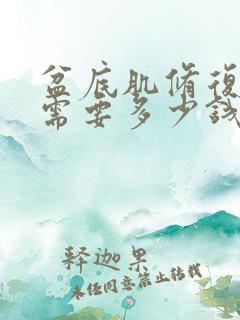 盆底肌脩復
需要多少錢
释迦果
未经同意禁止转载